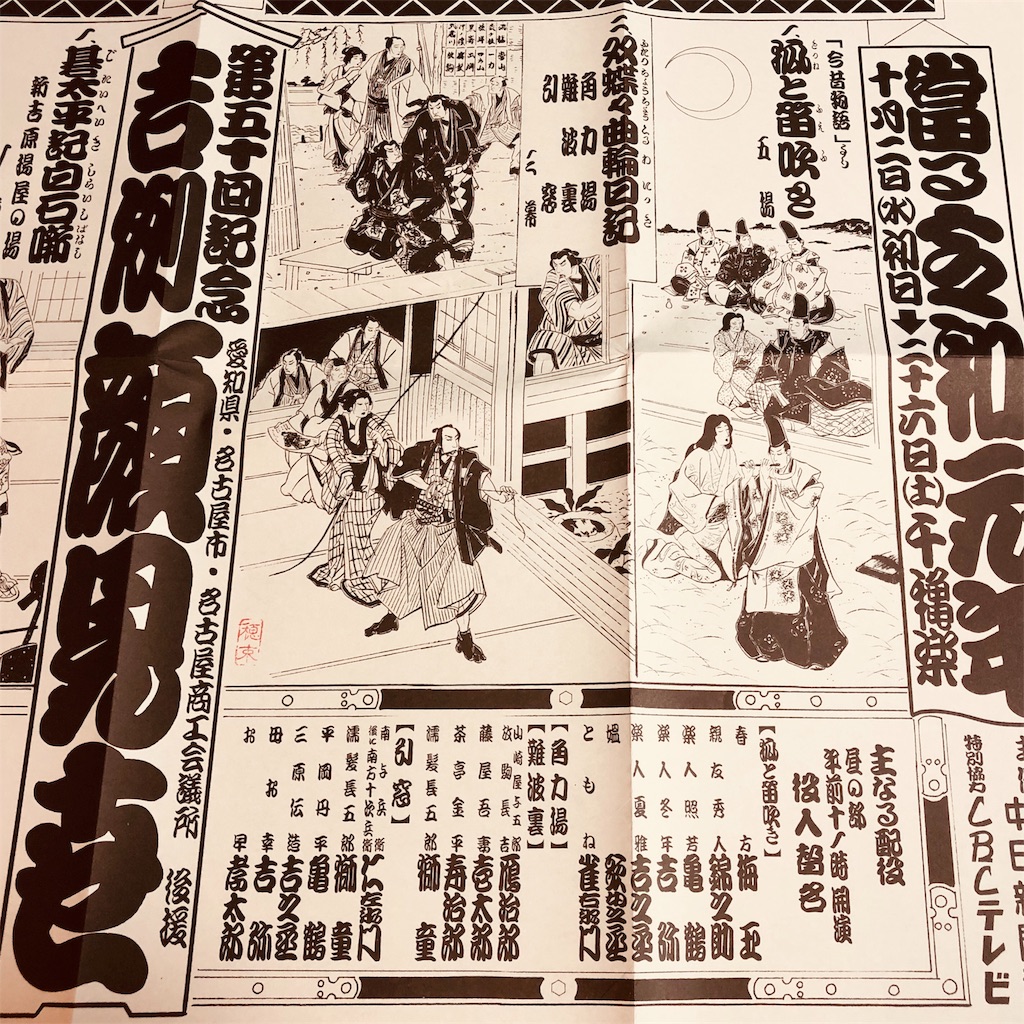 當る令和元年
十月二日㊌初日➡二十六日㊏千穐楽
特別協力 CBCテレビ
「今昔物語」より
一、狐と笛吹き
とりね
ふえふき
五場
二、双蝶々曲輪日記
ふたつちょうちょうくるわにっき
角力場
難波裏
引窓
二幕
第五十回記念
吉例顔見世
愛知県・名古屋市・名古屋商工会議所 後援
碁太平記白石噺
ごたいへいきしらいしばなし
新吉原揚屋の場
主なる配役
昼の部
午前十一時開演
役人替名
【狐と笛吹き】
春方 梅玉
親友秀人 錦之助
楽人照芳 亀鶴
楽人冬年 吉弥
楽人夏雅 吉之丞
媼 歌女之丞
ともね 雀右衛門
【角力場】
【難波裏】
山崎屋与五郎
放駒長吉 鴈治郎
藤屋吾妻 壱太郎
茶亭金平 寿治郎
濡髪長五郎 獅童
【引窓】
南与兵衛
後に南方十次兵衛 仁左衛門
濡髪長五郎 獅童
平岡丹平 亀鶴
三原伝造 吉之丞
母お幸 吉弥
お早 孝太郎